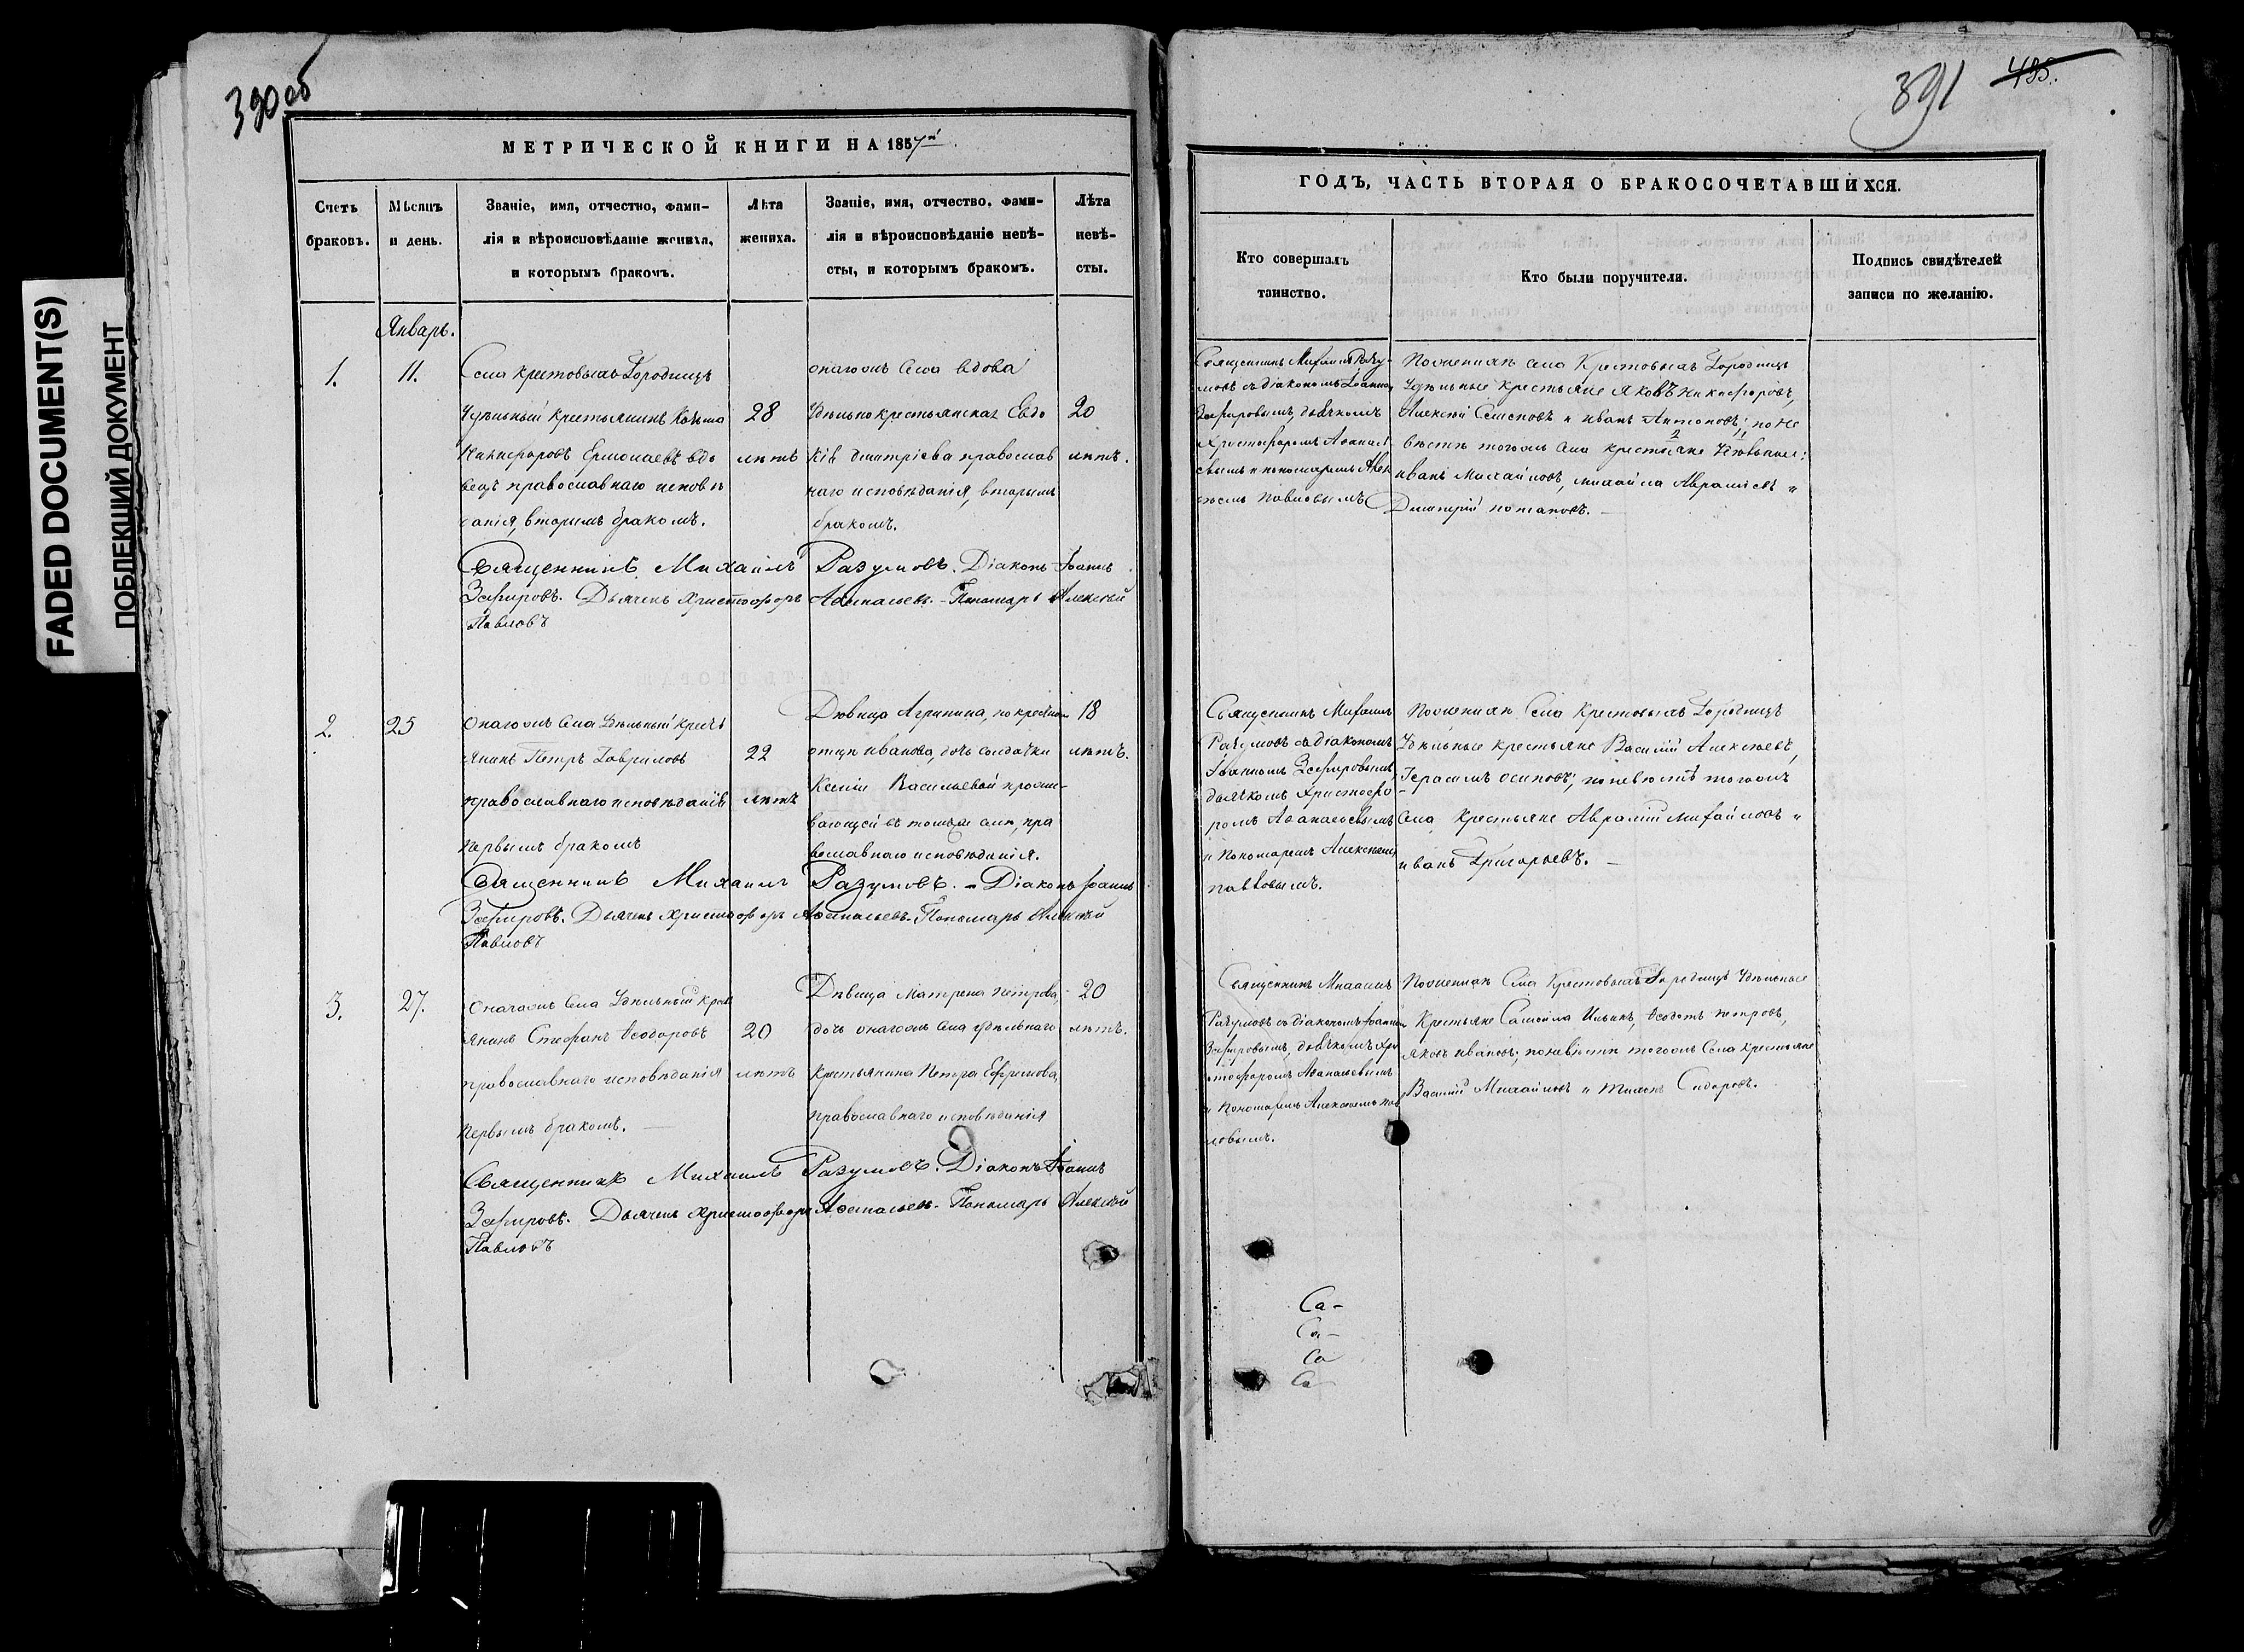 390 об
МЕТРИЧЕСКОЙ КНИГИ НА 1857й
Счетъ браковъ.
Мѣсяцъ и день.
Званіе, имя, отчество, фами-
лія и вѣроисповѣданіе жениха,
и которымъ бракомъ.
Лѣта жениха.
Званіе, имя, отчество, фами-
лія и вѣроисповѣданіе невѣ-
сты, и которымъ бракомъ.
Лѣта невѣ-
сты.
Январь.
1.
11.
Села Крестовыхъ Городищъ
Удѣльный крестьянинъ Козьма
Никифоровъ Ермолаевъ вдо
вецъ православнаго исповѣ
данія, вторымъ бракомъ.
28
лѣтъ
онагожъ Села вдова
Удѣльнокрестьянская Евдо
кія Дмитріева православ
наго исповѣданія, вторымъ
бракомъ.
20
лѣтъ.
Священникъ Михаилъ Разумовъ. Діаконъ Іоаннъ
Зефировъ. Дьячекъ Христофоръ Аѳанасьевъ. - Пономарь Алексѣй
Павловъ
2.
25
Онагожъ Села Удѣльный крест
янинъ Петръ Гавриловъ
православнаго исповѣданія
первымъ бракомъ
22
лѣтъ
Дѣвица Агрипина, по крестном
отцѣ Иванова, дочь солдатки
Ксеніи Васильевой прожи-
вающей въ томъже селѣ, пра
вославнаго исповѣданія.
18
лѣтъ.
Священникъ Михаилъ Разумовъ. - Діаконъ Іоаннъ
Зефировъ. Дьячекъ Христофоръ Аѳанасьевъ. Пономарь Алексѣй
Павловъ
3.
27.
Онагожъ Села Удѣльный крест
янинъ Стефанъ Ѳеодоровъ
православнаго исповѣданія
первымъ бракомъ.
20
лѣтъ
Дѣвица Матрена Петрова,
дочь онагожъ Села удѣльнаго
крестьянина Петра Ефремова,
православнаго исповѣданія
20
лѣтъ.
Священникъ Михаилъ Разумовъ. Діаконъ Іоаннъ
Зефировъ. Дьячекъ Христофоръ Аѳанасьевъ. Пономарь Алексѣй
Павловъ
391
485.
ГОДЪ, ЧАСТЬ ВТОРАЯ О БРАКОСОЧЕТАВШИХСЯ.
Кто совершалъ
таинство.
Кто были поручители.
Подпись свидѣтелей
записи по желанію.
Священникъ Михаилъ Разу-
мовъ съ діакономъ Іоанном
Зефировымъ, дьячкомъ
Христофоромъ Аѳанась
евымъ и пономаремъ Алек
сѣемъ Павловымъ
По женихѣ села Крестовыхъ Городищъ
Удѣльные крестьяне Яковъ Никифоровъ,
Алексѣй Семеновъ и Иванъ Антоновъ; по не
вѣстѣ тогожъ села крестьяне
Иванъ Михайловъ, Михайла Авраміевъ и
Дмитрій Потаповъ. -
Священникъ Михаилъ
Разумовъ съ діакономъ
Іоанномъ Зефировымъ,
дьячкомъ Христофо
ромъ Аѳанасьевымъ
и Пономаремъ Алексѣемъ
Павловымъ.
По женихѣ Села Крестовыхъ Городищъ
Удѣльные крестьяне Василій Алексѣевъ,
Герасимъ Осиповъ; по невѣстѣ тогожъ
Села крестьяне Аврамій Михайловъ и
Иванъ Григорьевъ. -
Священникъ Михаилъ
Разумовъ съ діакономъ Іоанном
Зефировымъ, дьячкомъ Хри
стофоромъ Аѳанасьевымъ
и Пономаремъ Алексѣемъ Пав
ловымъ.
По женихѣ Села Крестовыхъ Городищъ Удѣльные
Крестьяне Самойла Ильинъ, Ѳедотъ Петровъ,
Яковъ Ивановъ; по невѣстѣ тогожъ Села крестьяне
Василій Михайловъ и Тихонъ Сидоровъ.
Са-
Са-
Са
Са
FADED DOCUMENT(S)
ПОБЛЕКШИЙ ДОКУМЕНТ